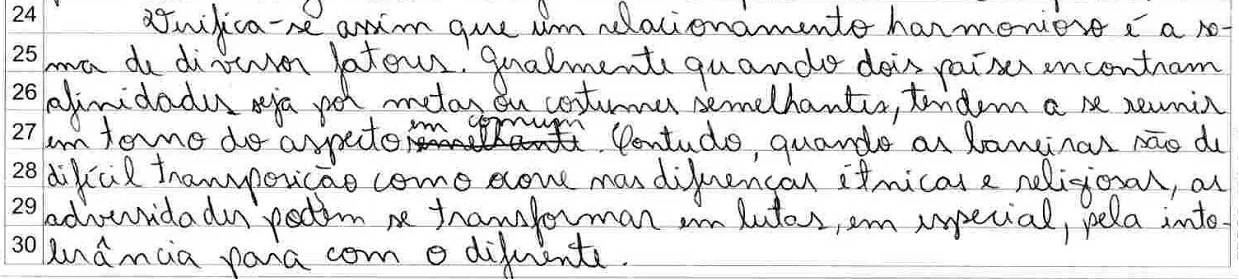 24 Verifica-se assim que um relacionamento harmonioso é a so-
25 ma de diversos fatores. Geralmente quando dois países encontram
26 afinidades seja por metas ou costumes semelhantes, tendem a se reunir
27 em torno do aspecto semelhante em comum. Contudo, quando as barreiras são de
28 difícil transposição como ocorre nas diferenças étnicas e religiosas, as
29 adversidades podem se transformar em lutas, em especial, pela into-
30 lerância para com o diferente.